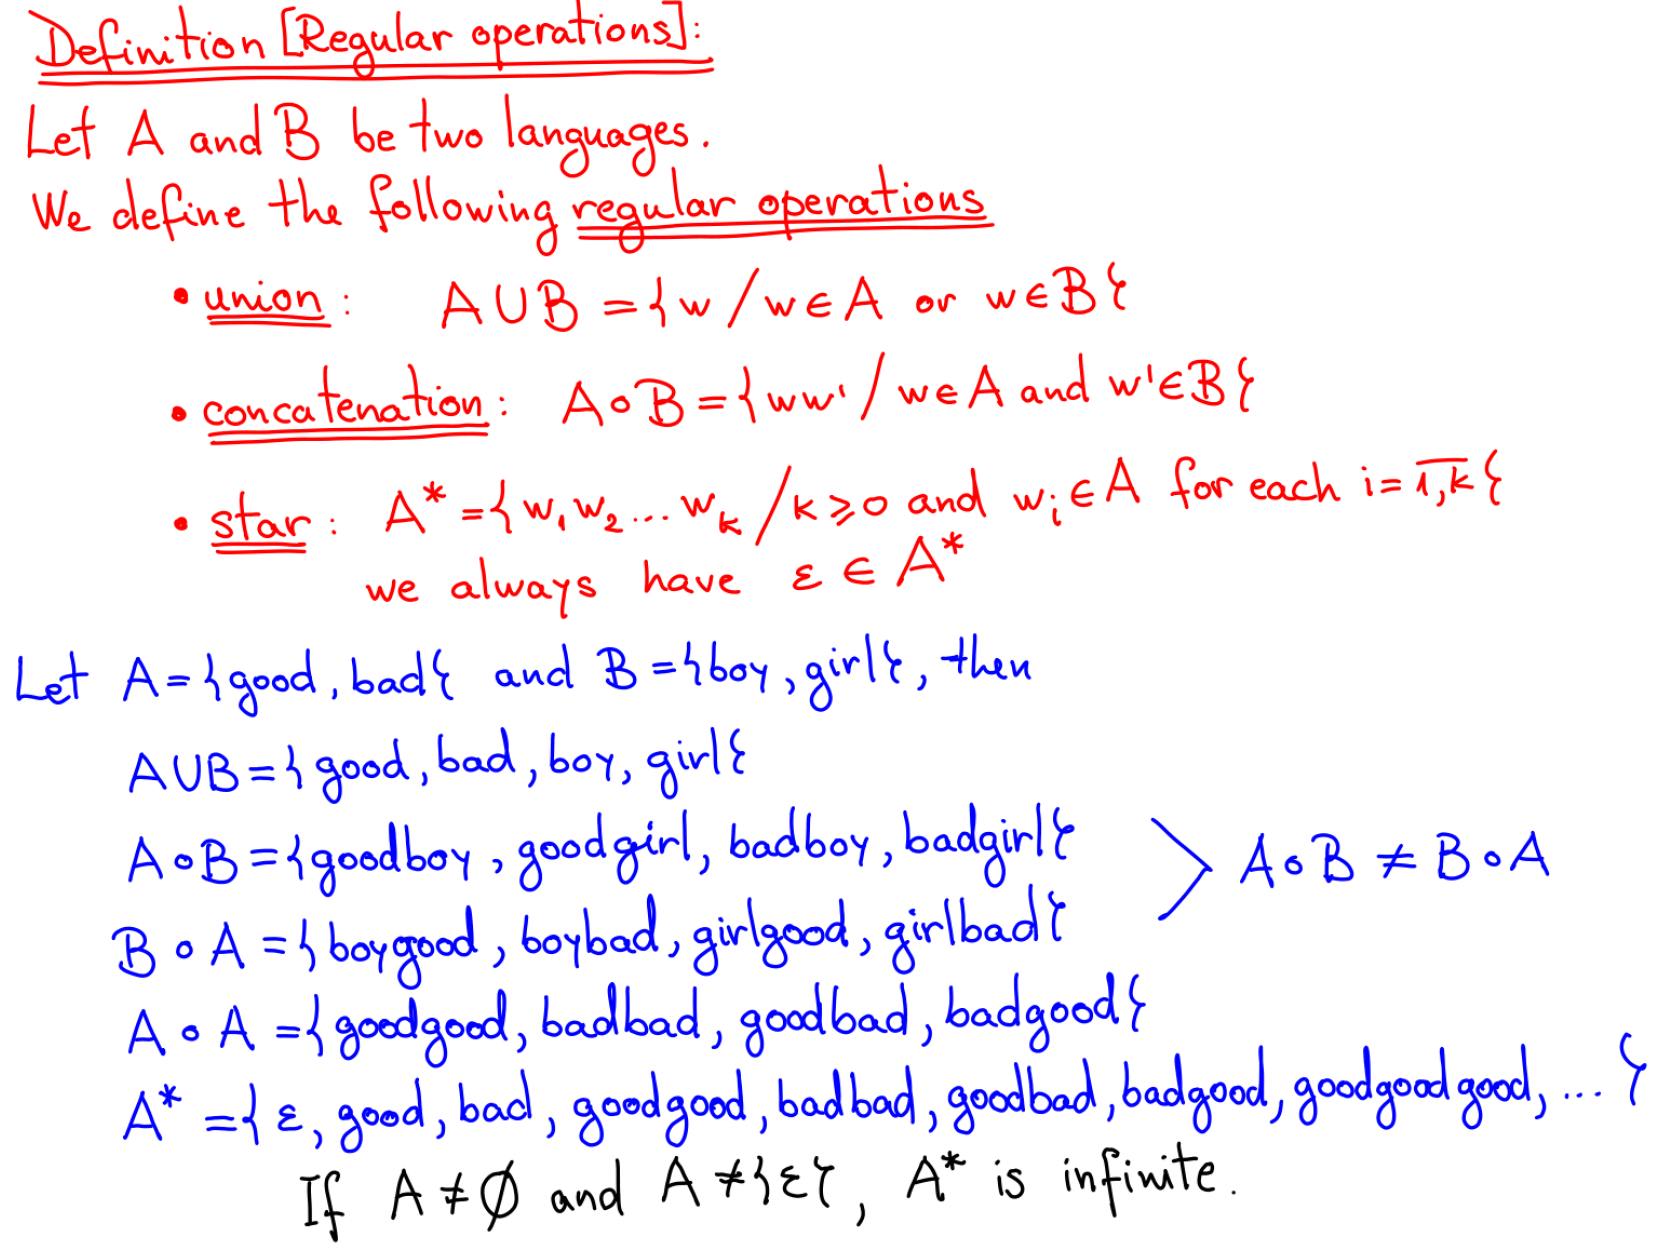 Definition [Regular operations]:
Let A and B be two languages.
We define the following regular operations
• union : A ∪ B = {w / w ∈ A or w ∈ B}
• concatenation : A ∘ B = {ww' / w ∈ A and w' ∈ B}
• star : A* = {w₁w₂...wₖ / k ⩾ 0 and wᵢ ∈ A for each i = \overline{1,k}}
we always have ε ∈ A*
Let A = {good, bad} and B = {boy, girl}, then
A∪B = {good, bad, boy, girl}
A∘B = {goodboy, goodgirl, badboy, badgirl}
> A∘B ≠ B∘A
B∘A = {boygood, boybad, girlgood, girlbad}
A∘A = {goodgood, badbad, goodbad, badgood}
A* = {ε, good, bad, goodgood, badbad, goodbad, badgood, goodgoodgood, ... }
If A ≠ ∅ and A ≠ {ε}, A* is infinite.